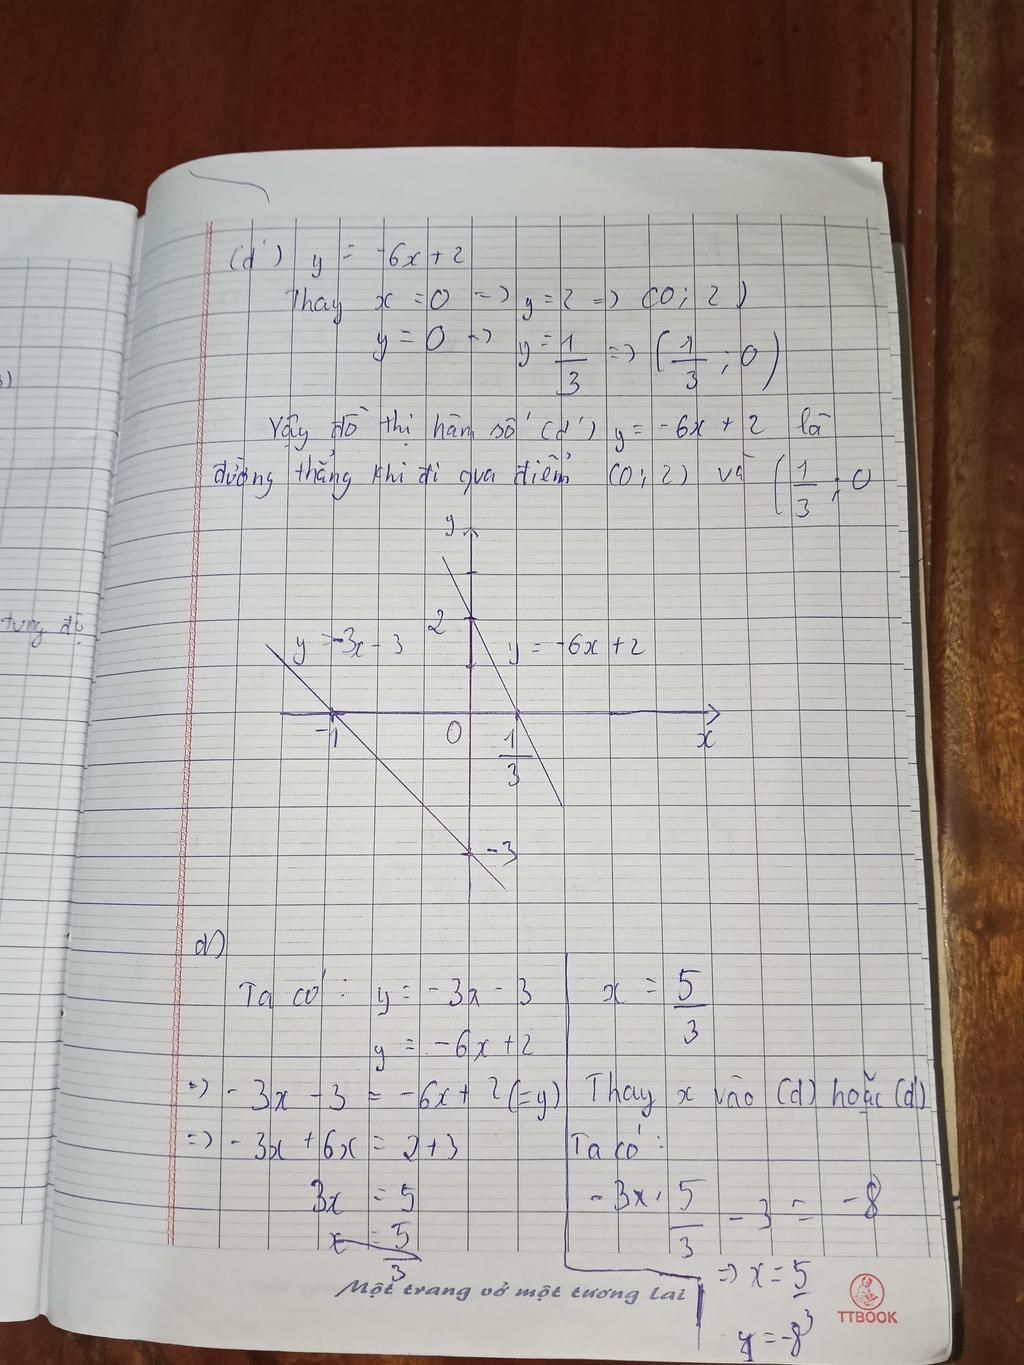 (d') y = -6x + 2
Thay x = 0 => y = 2 => (0; 2)
y = 0 => y = 1/3 => (1/3; 0)
Vậy đồ thị hàm số (d') y = -6x + 2 là
đường thẳng khi đi qua điểm (0; 2) và (1/3; 0
)
tung độ
y
2
y = -3x - 3
y = -6x + 2
-1
0
1/3
x
-3
d)
Ta có: y = -3x - 3
y = -6x + 2
=> -3x - 3 = -6x + 2 (=y)
=> -3x + 6x = 2 + 3
3x = 5
x = 5/3
x = 5/3
Thay x vào (d) hoặc (d')
Ta có:
-3x. 5/3 - 3 = -8
=> x = 5/3
y = -8
Một trang vở một tương lai
TTBOOK